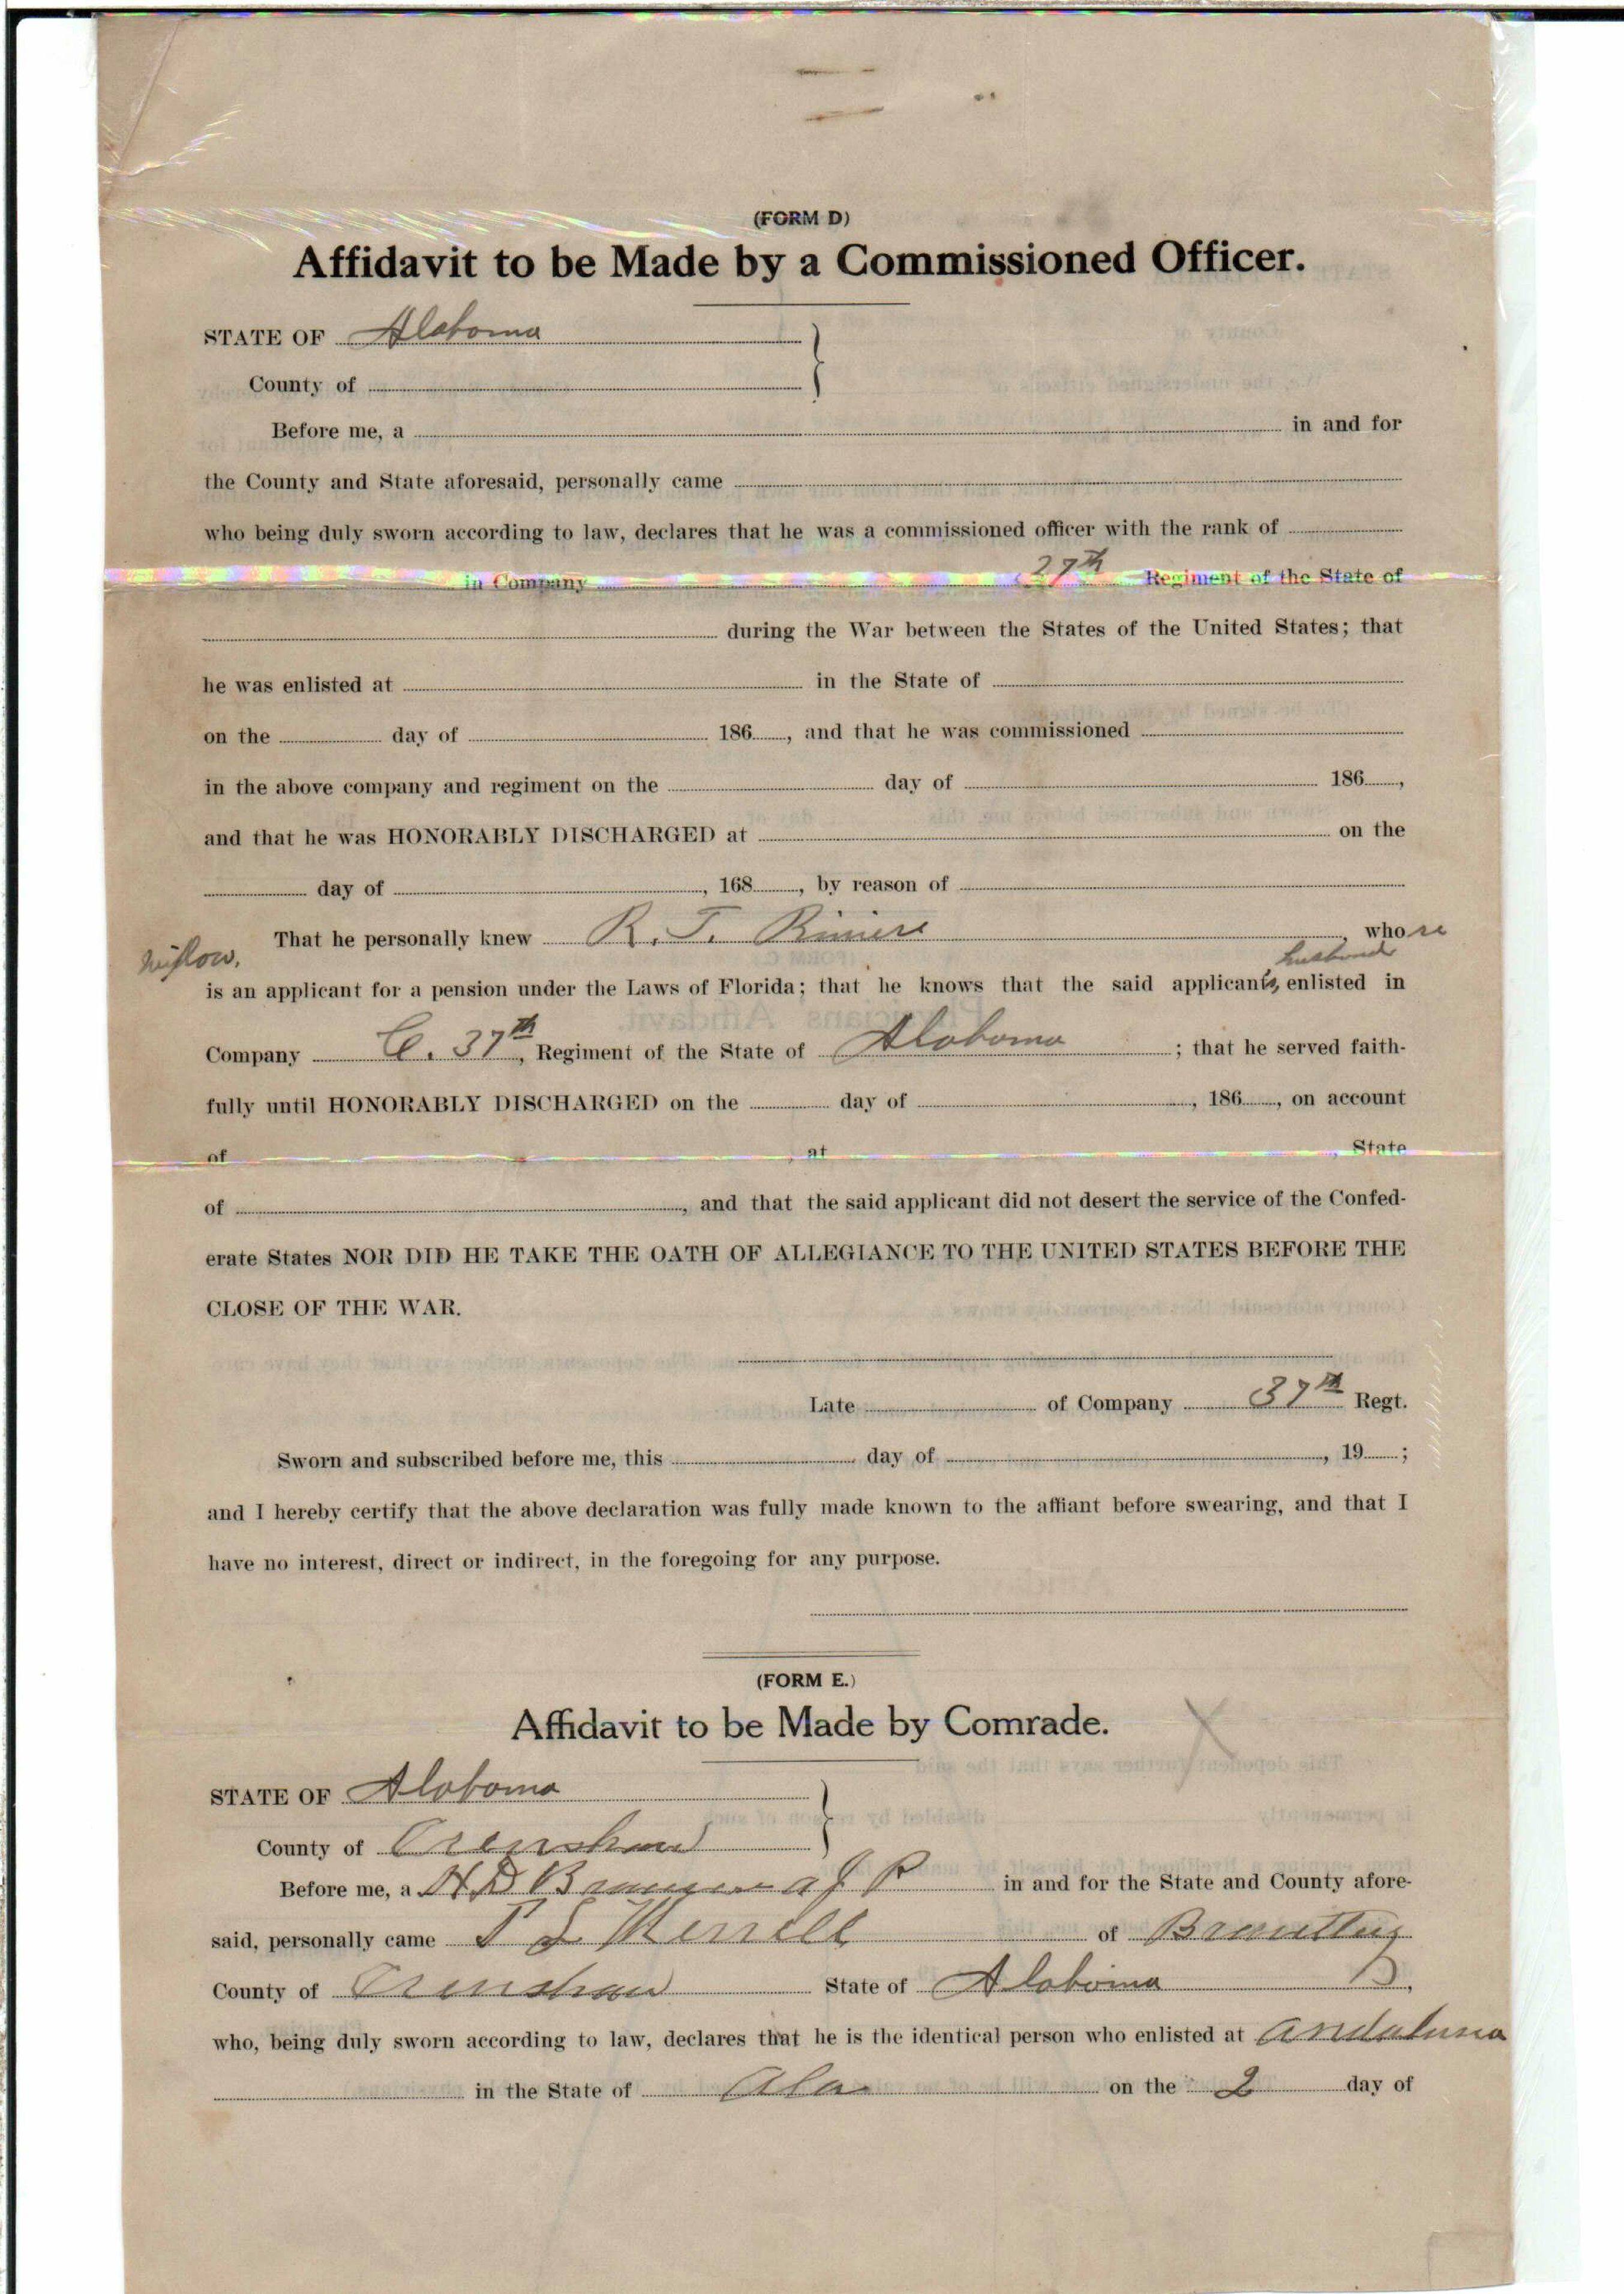 (FORM D)
Affidavit to be Made by a Commissioned Officer.
STATE OF Alabama
County of
Before me, a in and for
the County and State aforesaid, personally came
who being duly sworn according to law, declares that he was a commissioned officer with the rank of
in Company 37th Regiment of the State of
during the War between the States of the United States; that
he was enlisted at in the State of
on the day of 186, and that he was commissioned
in the above company and regiment on the day of 186,
and that he was HONORABLY DISCHARGED at on the
day of , 168, by reason of
That he personally knew R. T. , whose
widow. husband
is an applicant for a pension under the Laws of Florida; that he knows that the said applicant's, enlisted in
Company C. 37th, Regiment of the State of Alabama ; that he served faith-
fully until HONORABLY DISCHARGED on the day of , 186, on account
of , at , State
of , and that the said applicant did not desert the service of the Confed-
erate States NOR DID HE TAKE THE OATH OF ALLEGIANCE TO THE UNITED STATES BEFORE THE
CLOSE OF THE WAR.
Late of Company 37th Regt.
Sworn and subscribed before me, this day of , 19 ;
and I hereby certify that the above declaration was fully made known to the affiant before swearing, and that I
have no interest, direct or indirect, in the foregoing for any purpose.
(FORM E.)
Affidavit to be Made by Comrade.
STATE OF Alabama
County of Crenshaw
Before me, a H D a J P in and for the State and County afore-
said, personally came Merrill of
County of Crenshaw State of Alabama ,
who, being duly sworn according to law, declares that he is the identical person who enlisted at Andalusia
in the State of Ala on the 2 day of